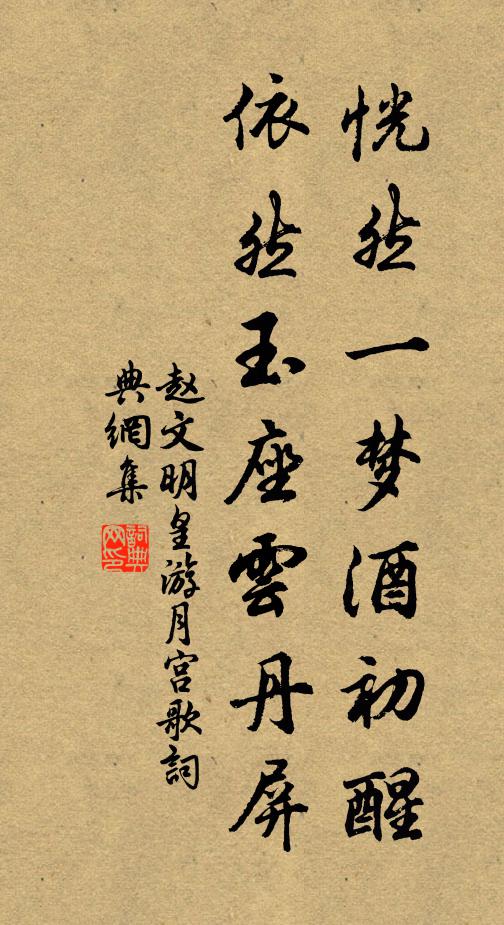 恍然一梦酒初醒
依然玉座雲丹屏
赵文明皇游月宫歌詞
典網集
詞典網印